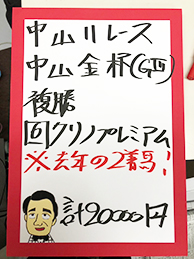 中山11レース
中山金杯(GⅢ)
複勝
回クリノプレミアム
※去年の2着馬!
計20000円